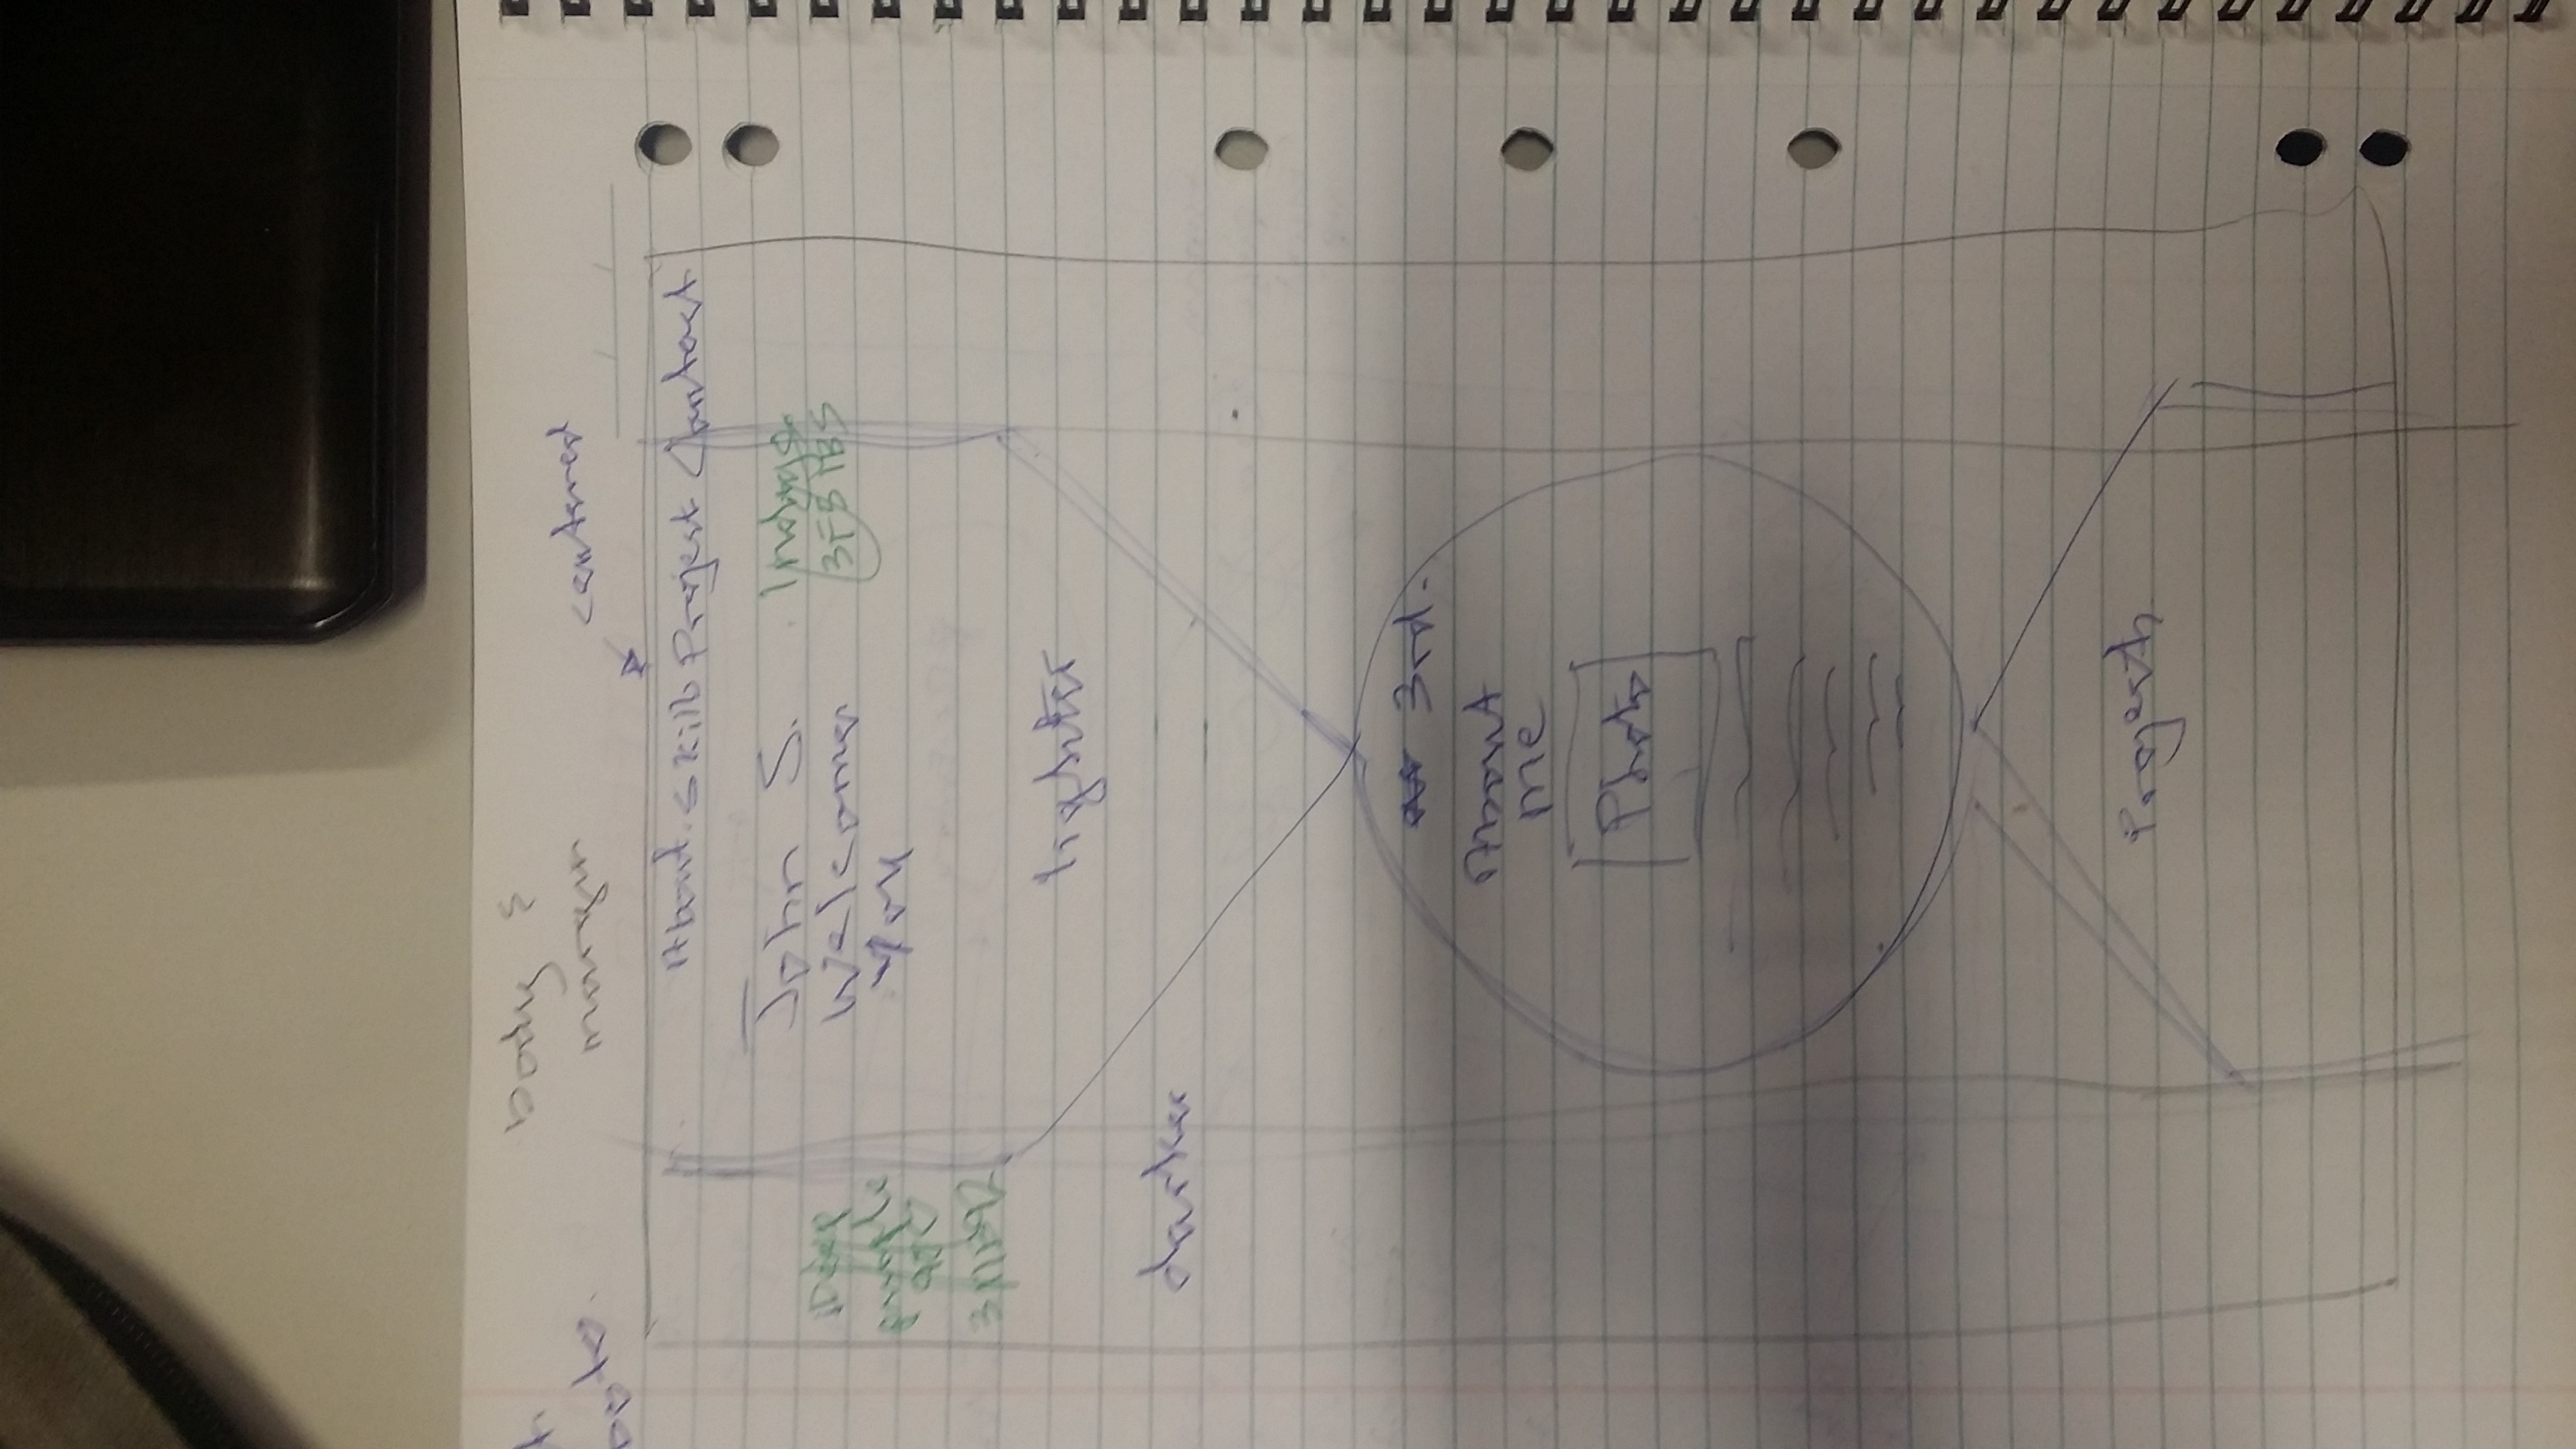 body &
margin
centered
About Skills Project Contact
John S.
Welcomes
You
Indigo
3F51B5
Deep
purple
lighter
darker
3rd.
About
me
Photo
Projects